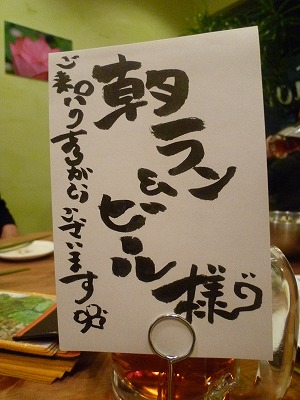 朝ラン&ビール様
ご来店ありがとうございます